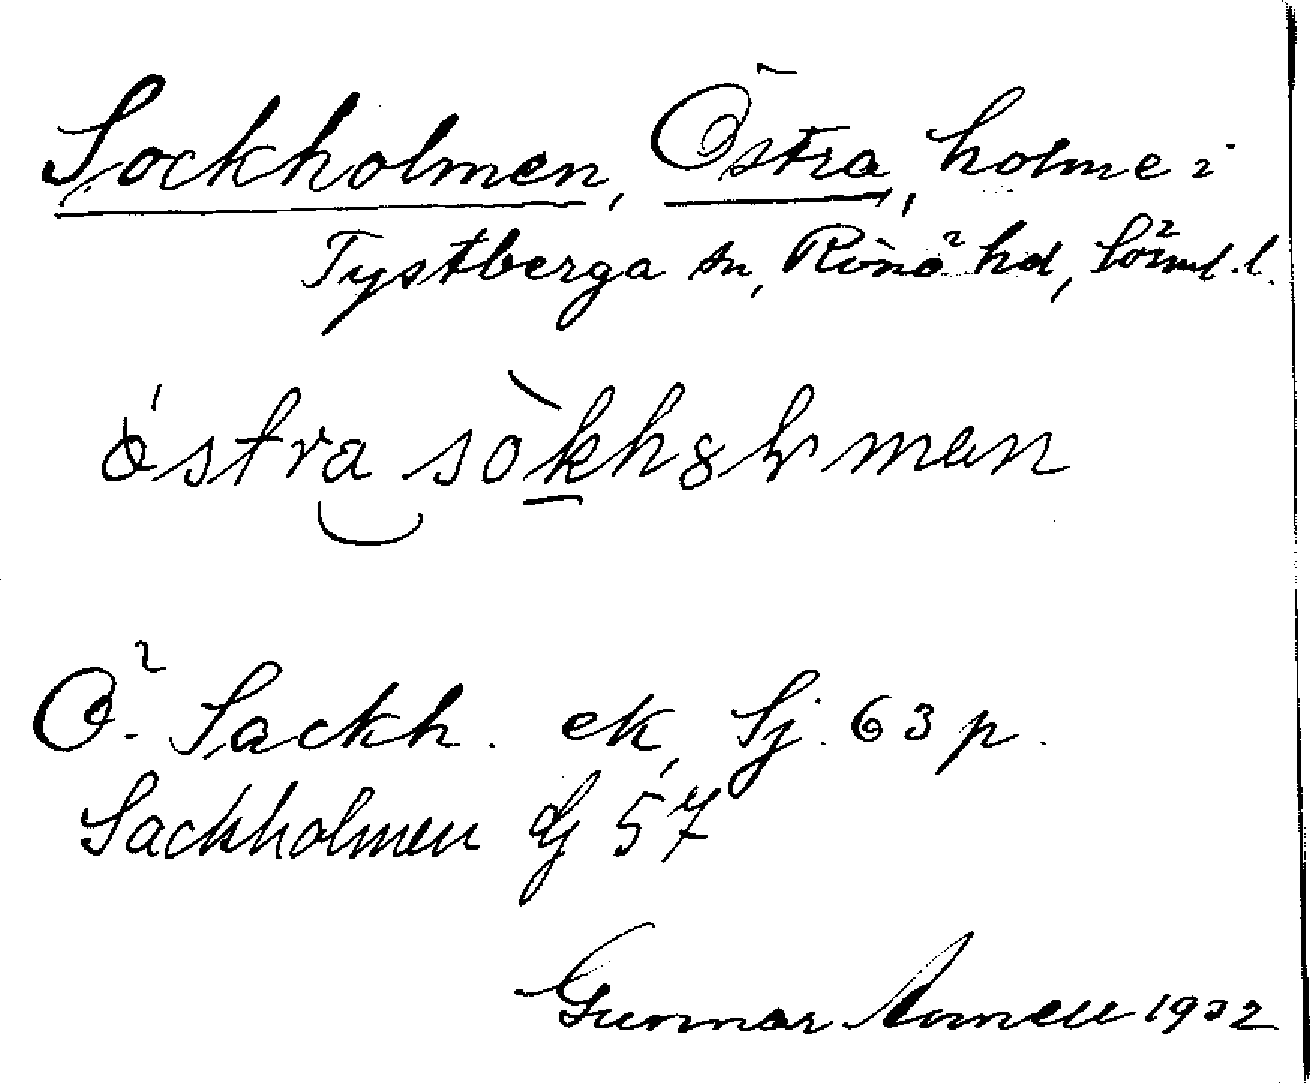 Sockholmen, Östra, holme i
Tystberga sn, Rönö hd, Sörml. l.
östra sòkhȣlmən
Ö. Sackh. ek, Sj. 63 p.
Sackholmen Gj 57
Gunnar Arnell 1932